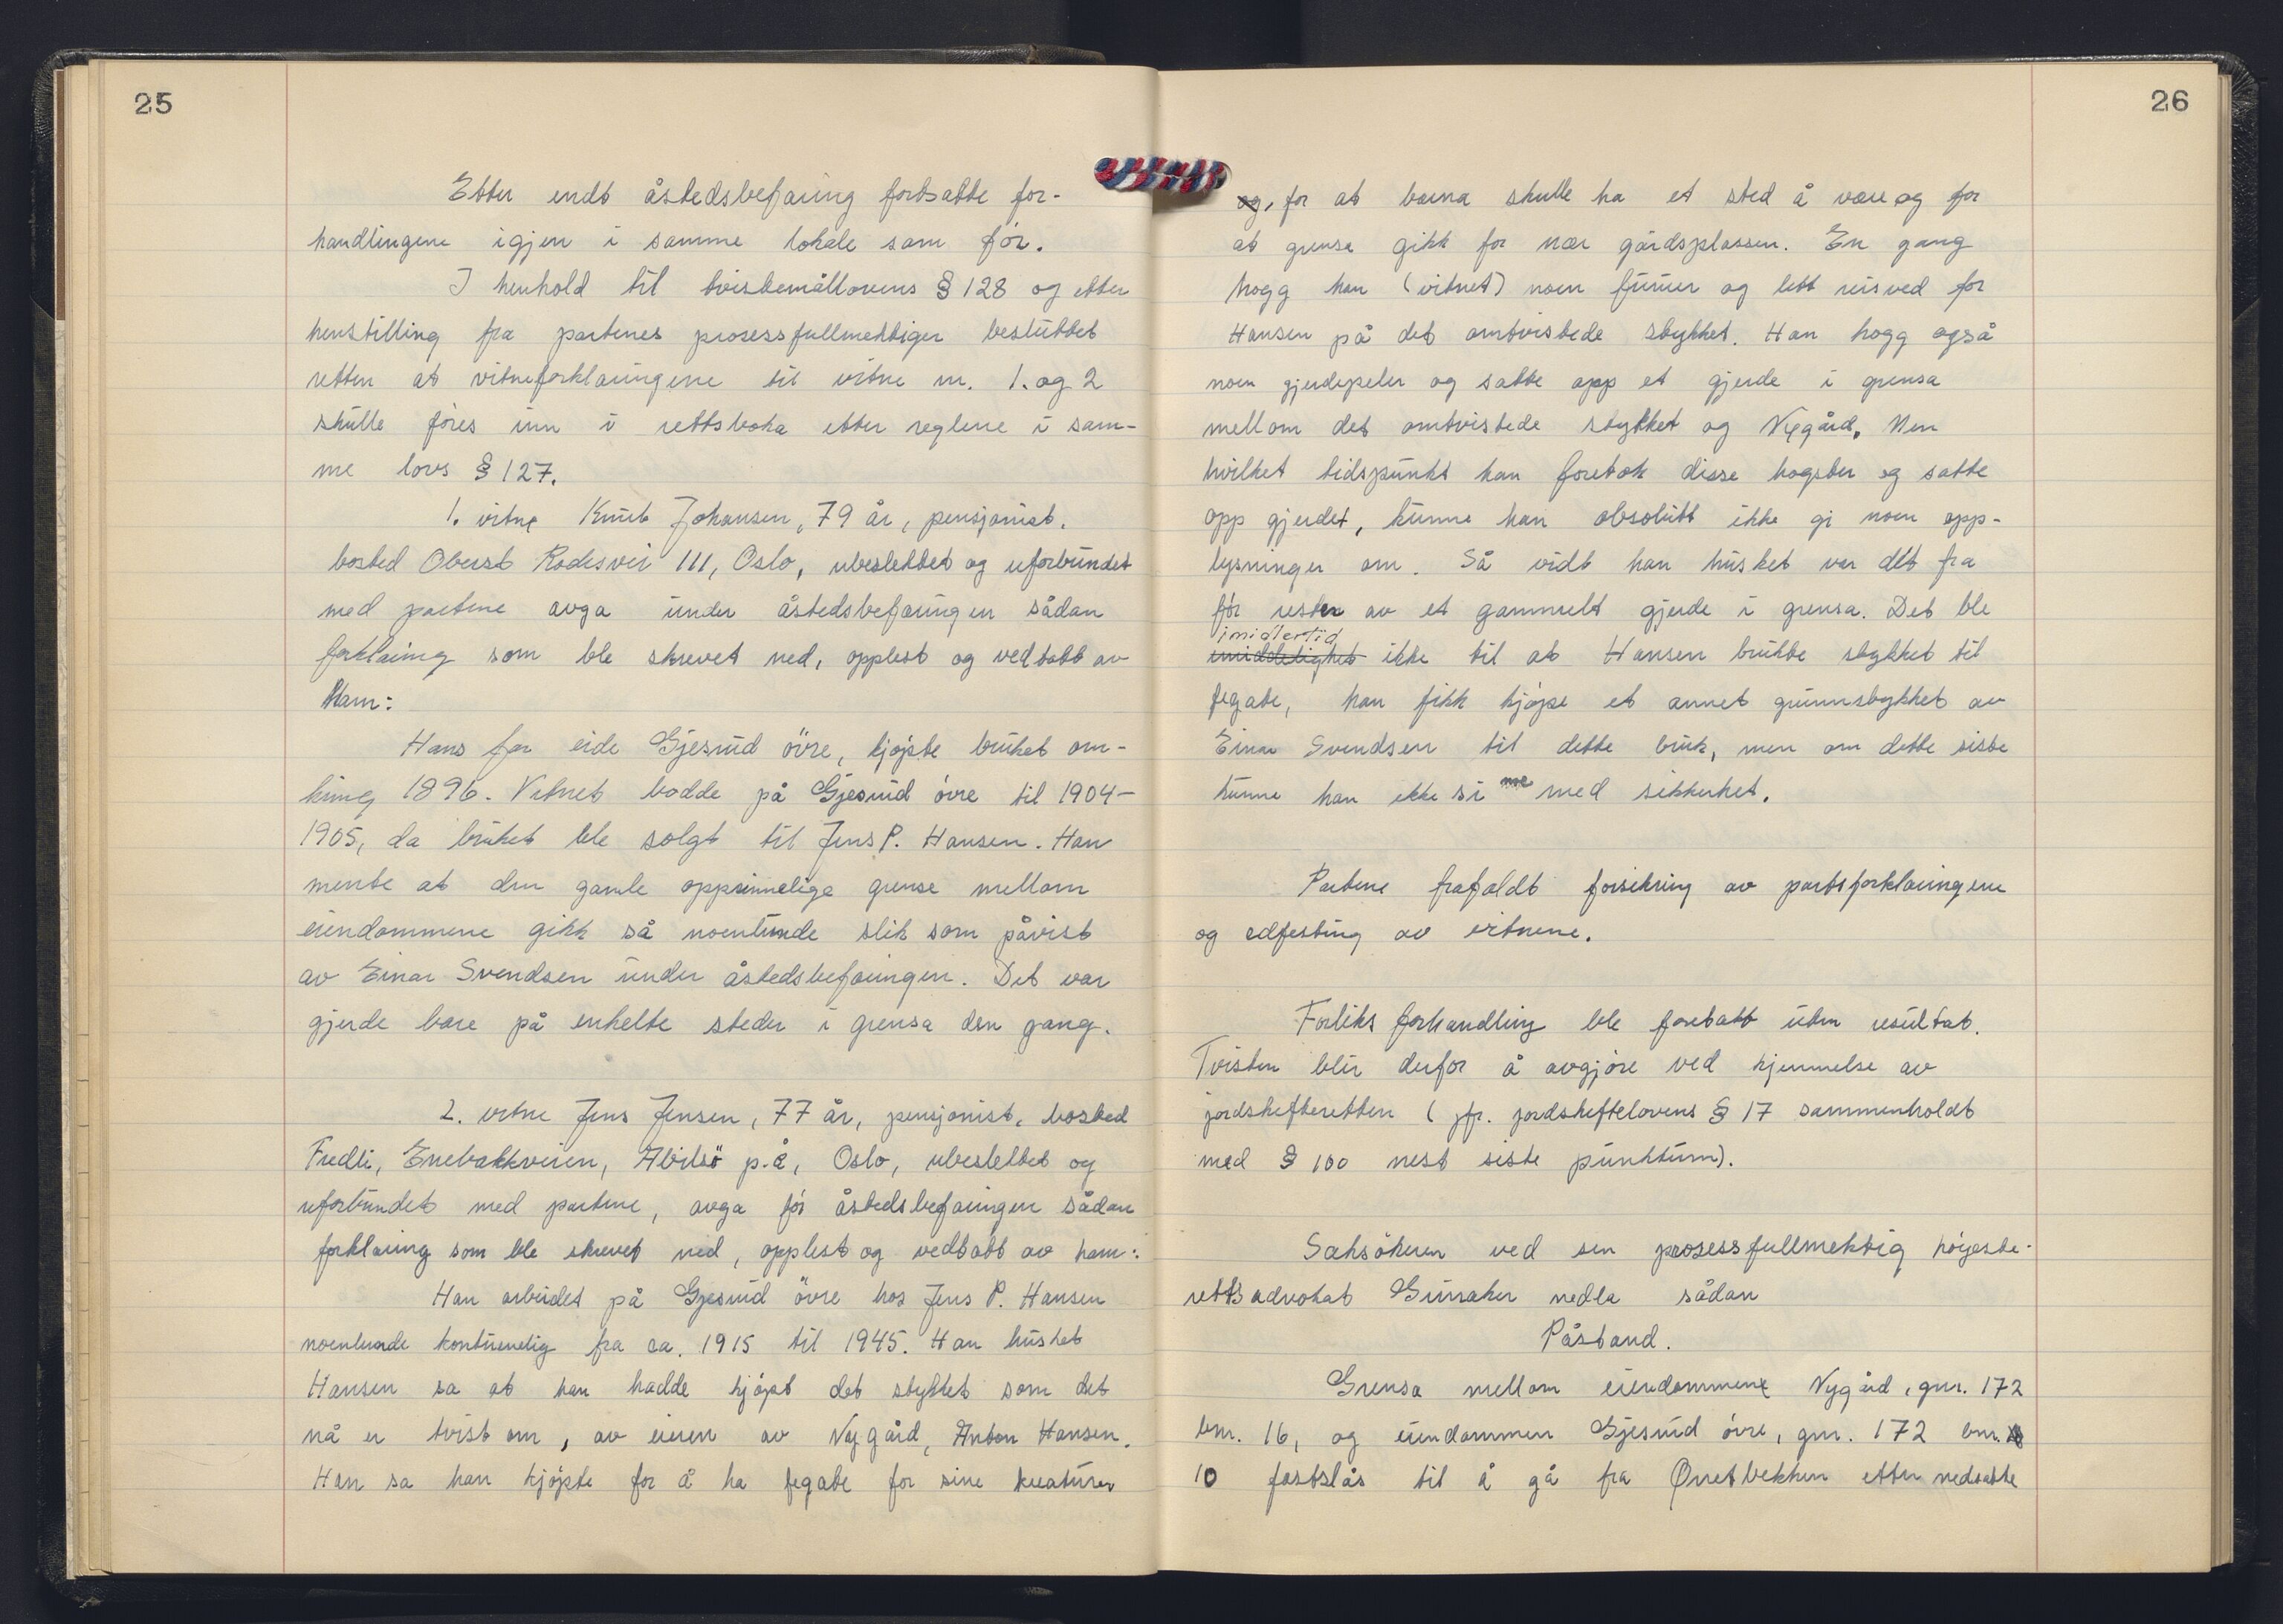 25
Etter endt åstedsbefaring fortsatte for-
handlingene igjen i samme lokale som før.
I henhold til tvistemållovens § 128 og etter
henstilling fra partenes prosessfullmektiger besluttet
retten at vitneforklaringene til vitne nr. 1. og 2
skulle føres inn i rettsboka etter reglene i sam-
me lovs § 127.
1. vitne Knut Johansen, 79 år, pensjonist,
bosted Oberst Rodesvei 111, Oslo, ubeslektet og uforbundet
med partene avga under åstedsbefaringen sådan
forklaring som ble skrevet ned, opplest og vedtatt av
ham:
Hans far eide Gjesrud övre, kjøpte bruket om-
kring 1896. Vitnet bodde på Gjesrud övre til 1904-
1905, da bruket ble solgt til Jens P. Hansen. Han
mente at den gamle oppsinnelige grense mellom
eiendommene gikk så noenlunde slik som påvist
av Einar Svendsen under åstedsbefaringen. Det var
gjerde bare på enkelte steder i grensa den gang.
2. vitne Jens Jensen, 77 år, pensjonist, bosted
Fredli, Enebakkveien, Abildsö p.å, Oslo, ubeslektet og
uforbundet med partene, avga før åstedsbefaringen sådan
forklaring som ble skrevet ned, opplest og vedtatt av ham:
Han arbeidet på Gjesrud övre hos Jens P. Hansen
noenlunde kontinuelig fra ca. 1915 til 1945. Han husket
Hansen sa at han hadde kjøpt det stykket som det
nå er tvist om, av eieren av Nygård, Anton Hansen.
Han sa han kjøpte for å ha fegate for sine kreaturer
26
og, for at barna skulle ha et sted å være og for
at grensa gikk for nær gårdsplassen. En gang
hogg han (vitnet) noen furuer og litt reisved for
Hansen på det omtvistede stykket. Han hogg også
noen gjerdepeler og satte opp et gjerde i grensa
mellom det omtvistede stykket og Nygård. Men
hvilket tidspunkt han foretok disse hogster og satte
opp gjerdet, kunne han absolutt ikke gi noen opp-
lysninger om. Så vidt han husket var det fra
før rester av et gammelt gjerde i grensa. Det ble
imidlertid
ikke til at Hansen brukte stykket til
fegate, han fikk kjøpe et annet grunnstykket av
Einar Svendsen til dette bruk, men om dette siste
kunne han ikke si noe med sikkerhet.
Partene frafaldt forsikring av partsforklaringene
og edfesting av vitnene.
Forliksforhandling ble foretatt uten resultat.
Tvisten blir derfor å avgjøre ved kjennelse av
jordskifteretten (jfr. jordskiftelovens § 17 sammenholdt
med § 100 nest siste punktum).
Saksøkeren ved sen prosessfullmektig høyeste-
rettsadvokat Grinaker nedla sådan
Påstand.
Grensa mellom eiendommene Nygård, gnr. 172
bnr. 16, og eiendommen Gjesrud övre, gnr. 172 bnr.
10 fastslås til å gå fra Ørretbekken etter nedsatte